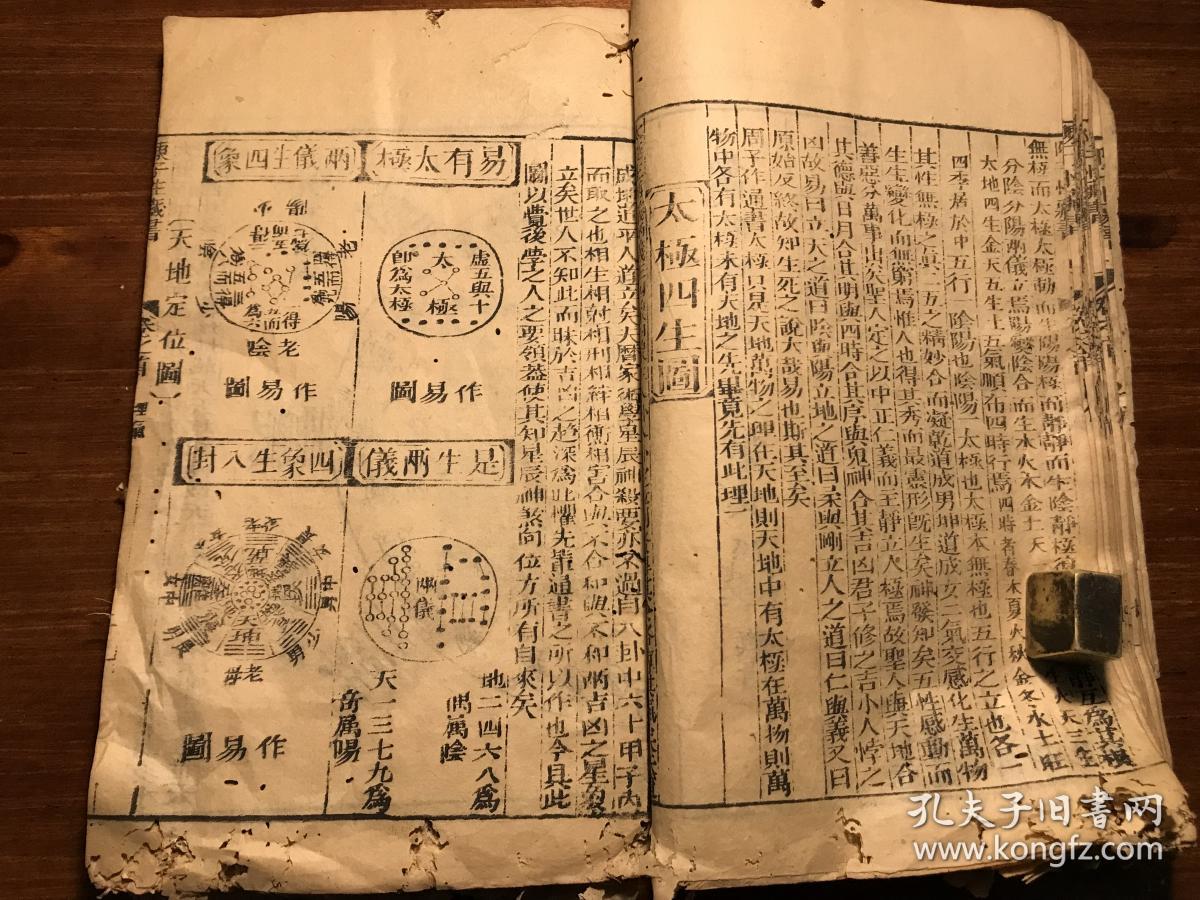 無極而太極太極動而生陽陽極而靜靜而生陰靜極復
分陰分陽兩儀立焉陽變陰合而生水火木金土天
太地四生金天五生土五氣順布四時行焉四時者春木夏火秋金冬水土旺
四季居於中五行一陰陽也陰陽一太極也太極本無極也五行之立也各一
其性無極之真二五之精妙合而凝乾道成男坤道成女二氣交感化生萬物
生生變化而無窮焉惟人也得其秀而最靈形既生矣神發知矣五性感動而
善惡分萬事出矣聖人定之以中正仁義而主靜立人極焉故聖人與天地合
其德與日月合其明與四時合其序與鬼神合其吉凶君子修之吉小人悖之
凶故易曰立天之道曰陰與陽立地之道曰柔與剛立人之道曰仁與義又曰
原始反終故知生死之說大哉易也斯其至矣
周子作通書太極只是天地萬物之理在天地則天地中有太極在萬物則萬
物中各有太極未有天地之先畢竟先有此理
太極四生圖
成坤道平人道立矣大曆家術學星辰神殺要亦不過自八卦中六十甲子內
而取之也相生相尅相刑相絆相衝相害合與不合和與不和兩吉凶之星
立矣世人不知此而昧於吉凶之趨深為此懼先輩通書之所以作也今具此
圖以費後學之人之要領蓋使其知星辰神煞向位方所有自來矣
易有太極
虛五與十
太極
即為太極
作易圖
兩儀生四象
老陽
老陰
作易圖
是生兩儀
兩儀
地二四六八為
偶屬陰
天一三七九為
奇屬陽
四象生八卦
老母
中男
少男
作易圖
〔天地定位圖〕
孔夫子旧书网
www.kongfz.com